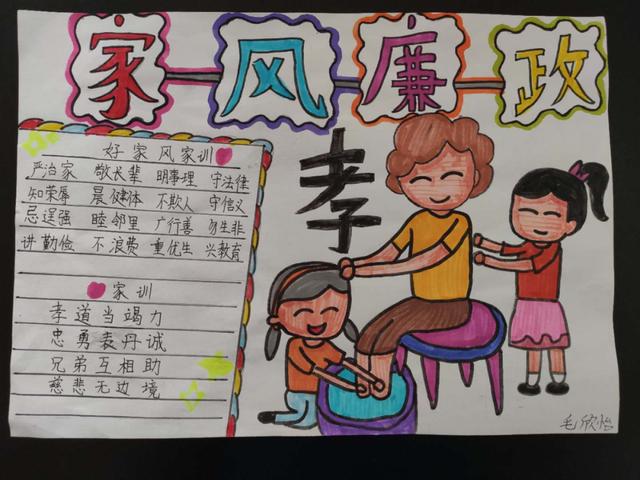 家风廉政
好家风家训
严治家 敬长辈 明事理 守法律
知荣辱 晨健体 不欺人 守信义
忌逞强 睦邻里 广行善 勿生非
讲勤俭 不浪费 重优生 兴教育
家训
孝道当竭力
忠勇表丹诚
兄弟互相助
慈悲无边境
孝
毛欣怡